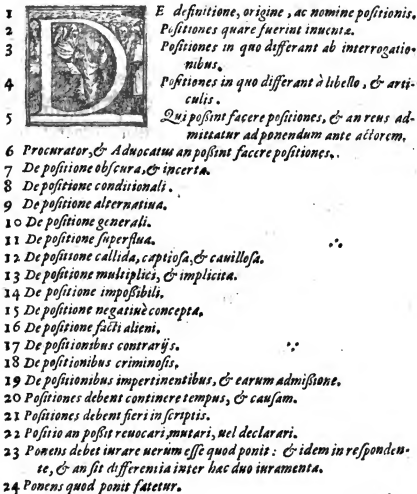 1 DE definitione, origine, ac nomine poſitionis.
2 Poſitiones quare fuerint inuentæ.
3 Poſitiones in quo differant ab interrogatio-
nibus.
4 Poſitiones in quo differant à libello, & arti-
culis.
5 Qui poßint facere poſitiones, & an reus ad-
mittatur ad ponendum ante actorem.
6 Procurator, & Aduocatus an poßint facere poſitiones.
7 De poſitione obſcura, & incerta.
8 De poſitione conditionali.
9 De poſitione alternatiua.
10 De poſitione generali.
11 De poſitione ſuperflua.
12 De poſitione callida, captioſa, & cauilloſa.
13 De poſitione multiplici, & implicita.
14 De poſitione impoßibili.
15 De poſitione negatiuè concepta.
16 De poſitione facti alieni.
17 De poſitionibus contrarijs.
18 De poſitionibus criminoſis.
19 De poſitionibus impertinentibus, & earum admißione.
20 Poſitiones debent continere tempus, & cauſam.
21 Poſitiones debent fieri in ſcriptis.
22 Poſitio an poßit reuocari, mutari, uel declarari.
23 Ponens debet iurare uerùm eſſe quod ponit: & idem in reſponden-
te, & an ſit differentia inter hæc duo iuramenta.
24 Ponens quod ponit fatetur.